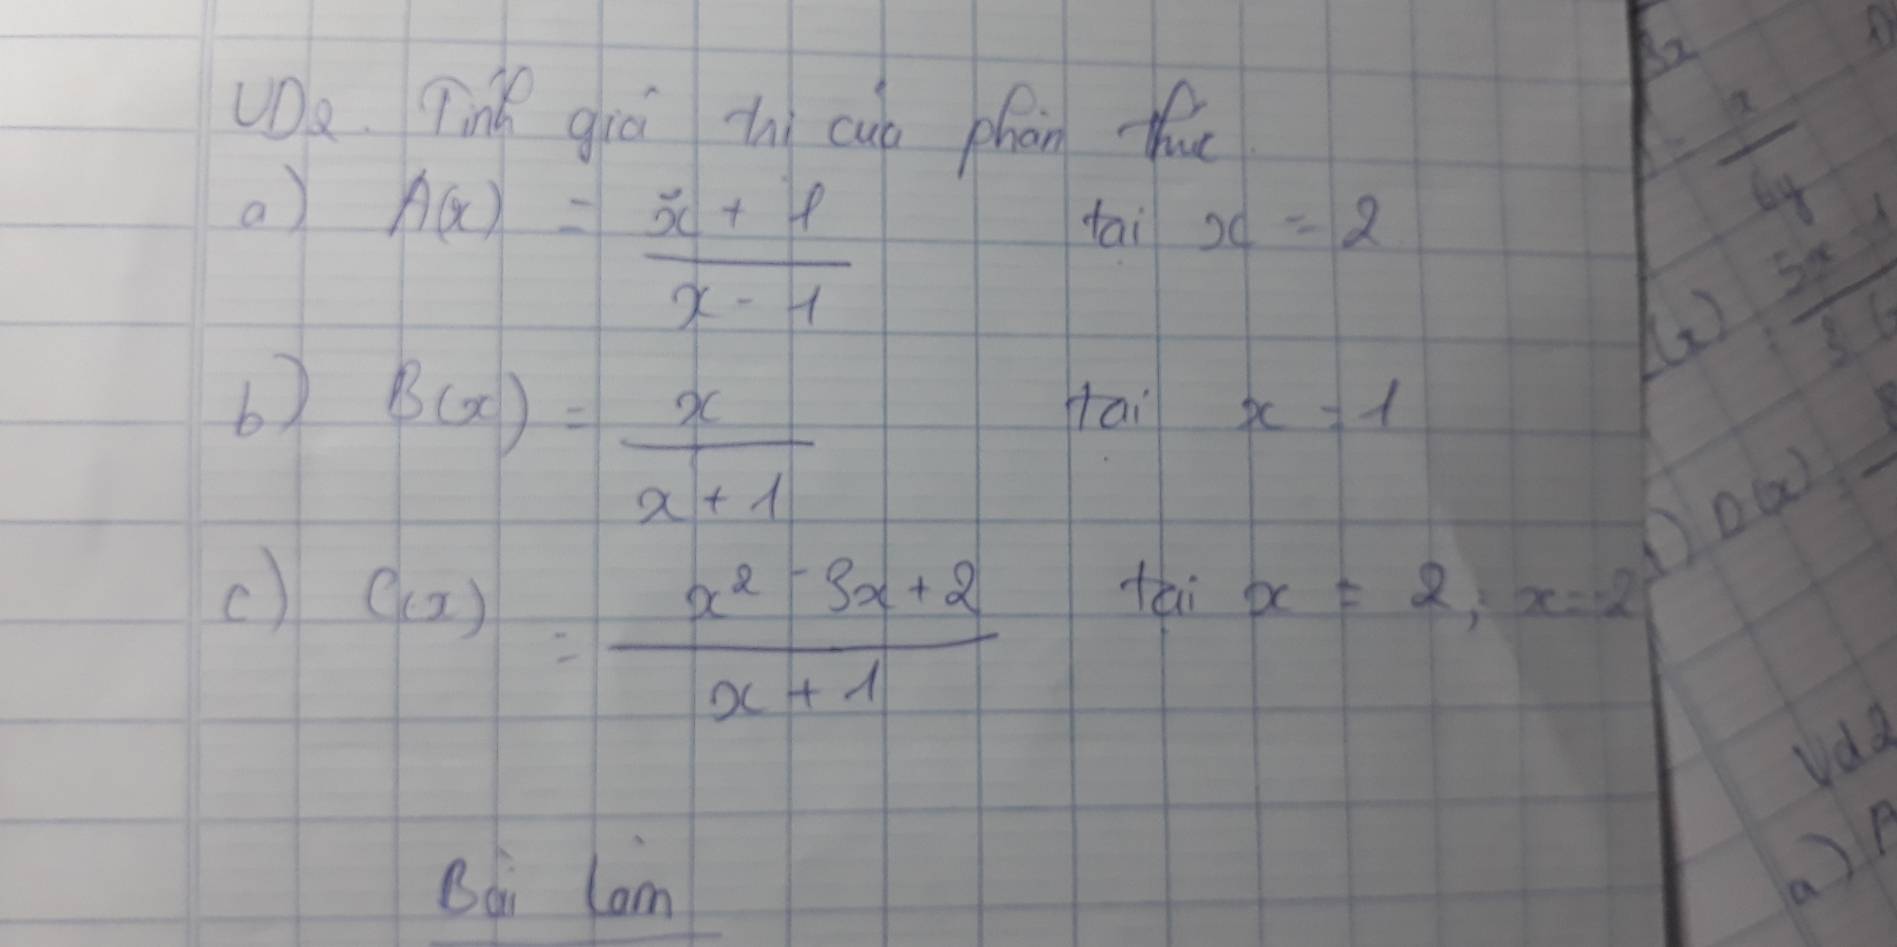 VD2. Tính giá trị của phân thức
a) A(x) = x + 1 / x - 1 tại x = 2
b) B(x) = x / x + 1 tại x = 1
c) C(x) = x² - 3x + 2 / x + 1 tại x = 2; x = -2
Bài làm
3x
x / 6y
5x
D(x)
Vd2
a) A